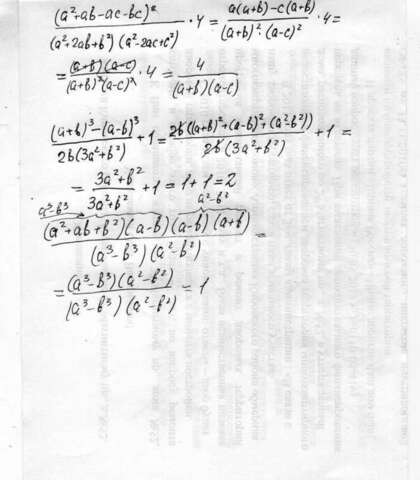 (a²+ab-ac-bc)² / (a²+2ab+b²)(a²-2ac+c²) · 4 = a(a+b)-c(a+b) / (a+b)²·(a-c)² · 4 =
= (a+b)(a-c) / (a+b)²(a-c)² · 4 = 4 / (a+b)(a-c)
(a+b)³-(a-b)³ / 2b(3a²+b²) + 1 = 2b((a+b)²+(a-b)²+(a²-b²)) / 2b(3a²+b²) + 1 =
= 3a²+b² / 3a²+b² + 1 = 1+1 = 2
a³-b³ a²-b²
(a²+ab+b²)(a-b)(a-b)(a+b) / (a³-b³)(a²-b²) =
= (a³-b³)(a²-b²) / (a³-b³)(a²-b²) = 1